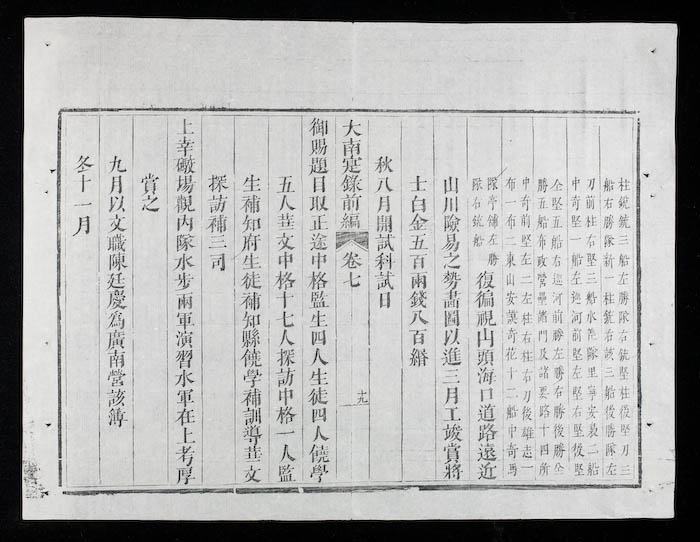 柱銃銃三船左勝隊右銃堅柱後堅刀三
船右勝隊新柱銃右該三船後勝隊左
刀前柱右堅三船水隊里寧安裂二船
中奇堅一船左巡河前堅左堅右堅後堅
全堅五船右巡河前勝左勝右勝後勝全
勝五船布政營壘諸門及諸要路十四所
中奇前堅左二左柱右柱右刀後雄志一
布一布二東山安護奇花十二船中奇馬
隊亭錦左勝
隊右銃船
復徧視山頭海口道路遠近
山川險易之勢畵圖以進三月工竣賞將
士白金五百兩錢八百緡
秋八月開試科試日
大南寔錄前編 卷七
十九
御賜題目取正途中格監生四人生徒四人饒學
五人華文中格十七人探訪中格一人監
生補知府生徒補知縣饒學補訓導華文
探訪補三司
上幸礮場觀內隊水步兩軍演習水軍在上考厚
賞之
九月以文職陳廷慶爲廣南營該簿
冬十一月